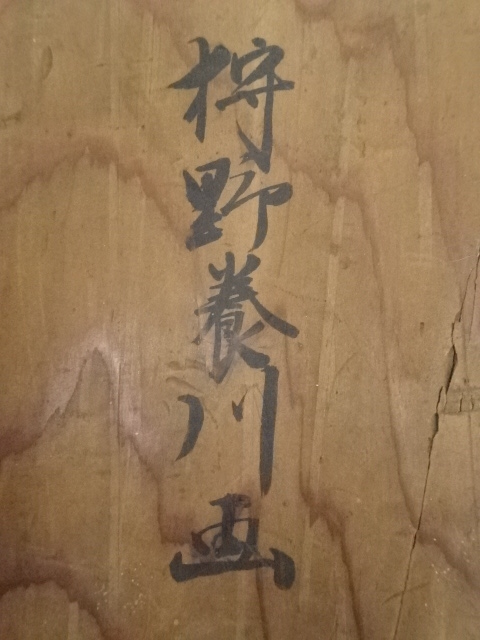 狩野養川画